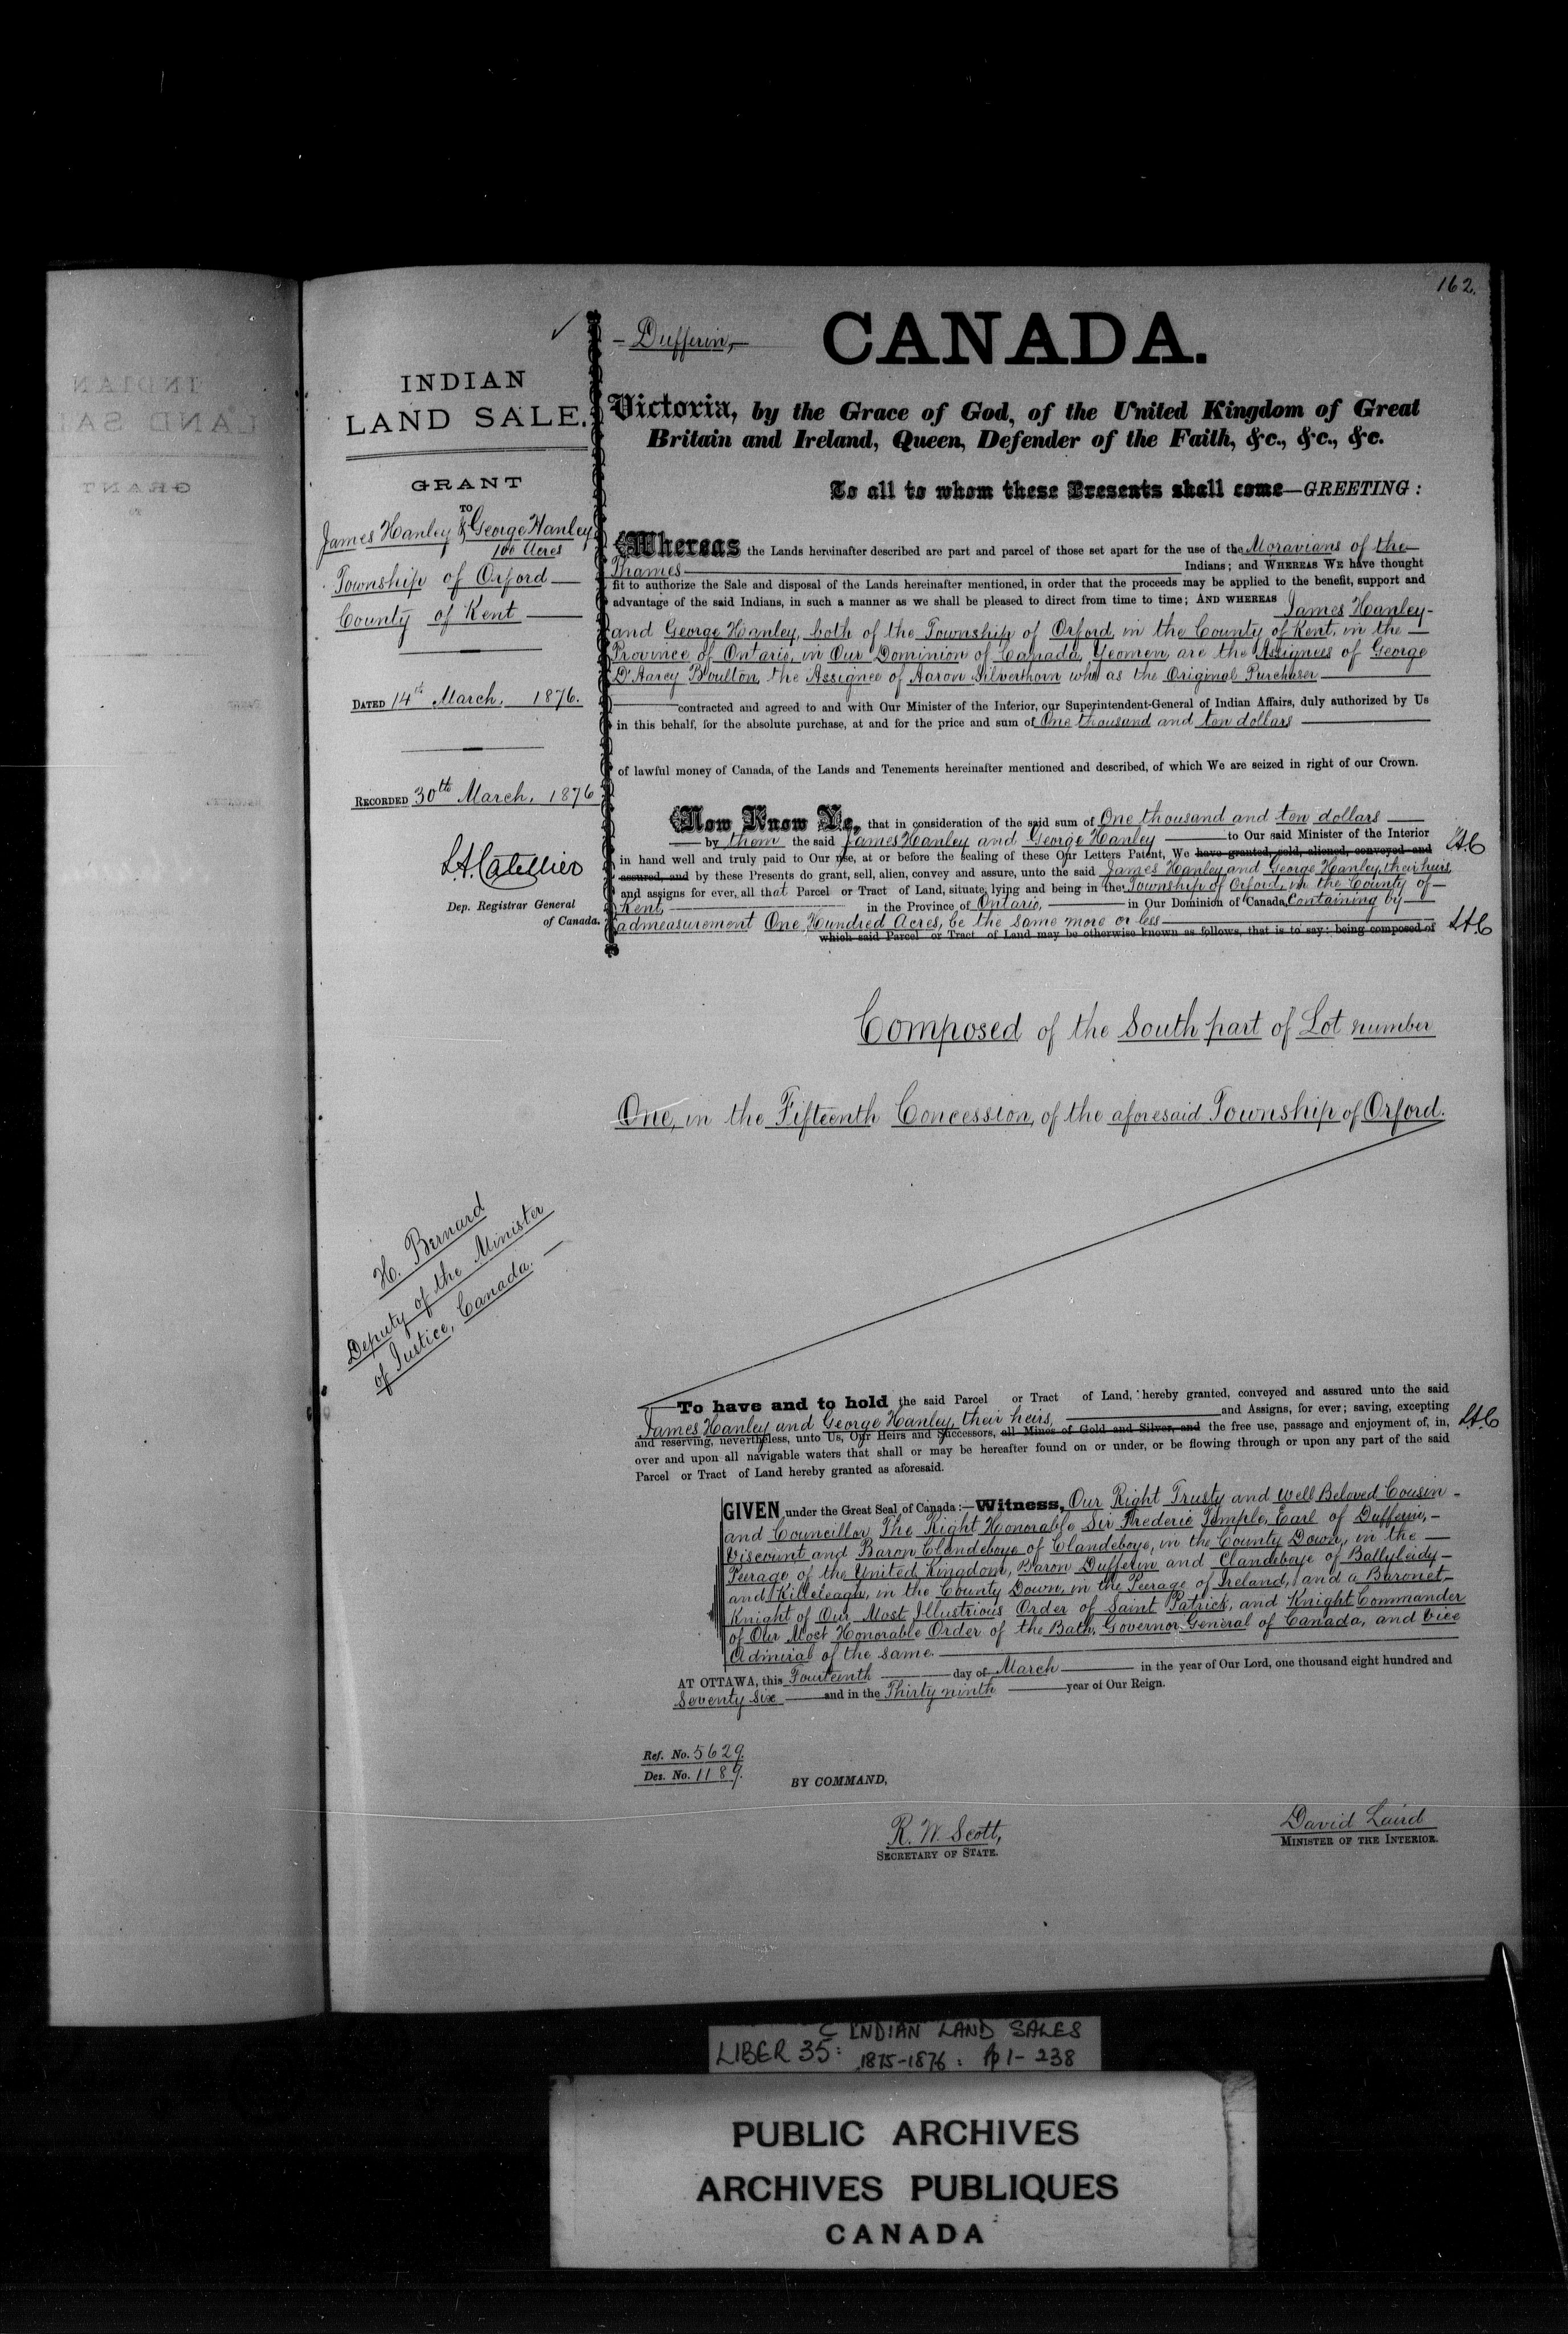 162.
INDIAN
LAND SALE.
GRANT
TO
James Hanley & George Hanley
100 Acres
Township of Orford
County of Kent
DATED 14th March, 1876.
RECORDED 30th March, 1876
L.A. Catellier
Dep. Registrar General
of Canada.
H. Bernard
Deputy of the Minister
of Justice, Canada.
- Dufferin, -
CANADA.
Victoria, by the Grace of God, of the United Kingdom of Great
Britain and Ireland, Queen, Defender of the Faith, &c., &c., &c.
To all to whom these Presents shall come—GREETING :
Whereas the Lands hereinafter described are part and parcel of those set apart for the use of the Moravians of the
Thames Indians; and WHEREAS WE have thought
fit to authorize the Sale and disposal of the Lands hereinafter mentioned, in order that the proceeds may be applied to the benefit, support and
advantage of the said Indians, in such a manner as we shall be pleased to direct from time to time; AND WHEREAS James Hanley
and George Hanley, both of the Township of Orford, in the County of Kent, in the
Province of Ontario, in Our Dominion of Canada, Yeomen, are the Assignees of George
D'Aarcy Boulton, the Assignee of Aaron Silverthorn who as the Original Purchaser
contracted and agreed to and with Our Minister of the Interior, our Superintendent-General of Indian Affairs, duly authorized by Us
in this behalf, for the absolute purchase, at and for the price and sum of One thousand and ten dollars
of lawful money of Canada, of the Lands and Tenements hereinafter mentioned and described, of which We are seized in right of our Crown.
Now Know Ye, that in consideration of the said sum of One thousand and ten dollars
by them the said James Hanley and George Hanley to Our said Minister of the Interior
in hand well and truly paid to Our use, at or before the sealing of these Our Letters Patent, We have granted, sold, aliened, conveyed and L.A.C
assured, and by these Presents do grant, sell, alien, convey and assure, unto the said James Hanley and George Hanley, their heirs
and assigns for ever, all that Parcel or Tract of Land, situate, lying and being in the Township of Orford, in the County of
Kent, in the Province of Ontario, in Our Dominion of Canada, Containing by
admeasurement One Hundred Acres, be the same more or less
which said Parcel or Tract of Land may be otherwise known as follows, that is to say: being composed of L.A.C
Composed of the South part of Lot number
One, in the Fifteenth Concession, of the aforesaid Township of Orford.
To have and to hold the said Parcel or Tract of Land, hereby granted, conveyed and assured unto the said
James Hanley and George Hanley, their heirs, and Assigns, for ever; saving, excepting
and reserving, nevertheless, unto Us, Our Heirs and Successors, all Mines of Gold and Silver, and the free use, passage and enjoyment of, in, L.A.C
over and upon all navigable waters that shall or may be hereafter found on or under, or be flowing through or upon any part of the said
Parcel or Tract of Land hereby granted as aforesaid.
GIVEN under the Great Seal of Canada:—Witness, Our Right Trusty and Well Beloved Cousin
and Councillor The Right Honorable Sir Frederic Temple, Earl of Dufferin,
Viscount and Baron Clandeboye of Clandeboye, in the County Down, in the
Peerage of the United Kingdom, Baron Dufferin and Clandeboye of Ballyleidy
and Killeleagh, in the County Down, in the Peerage of Ireland, and a Baronet
Knight of Our Most Illustrious Order of Saint Patrick, and Knight Commander
of Our Most Honorable Order of the Bath, Governor General of Canada, and Vice
Admiral of the same.
AT OTTAWA, this Fourteenth day of March in the year of Our Lord, one thousand eight hundred and
Seventy six and in the Thirty ninth year of Our Reign.
Ref. No. 5629.
Des. No. 1189.
BY COMMAND,
R. W. Scott,
SECRETARY OF STATE.
David Laird
MINISTER OF THE INTERIOR.
LIBER 35: INDIAN LAND SALES
1875-1876: pp 1-238
PUBLIC ARCHIVES
ARCHIVES PUBLIQUES
CANADA